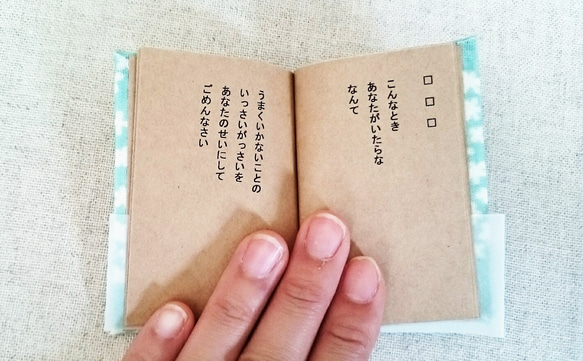 □□□
こんなとき
あなたがいたらな
なんて
うまくいかないことの
いっさいがっさいを
あなたのせいにして
ごめんなさい